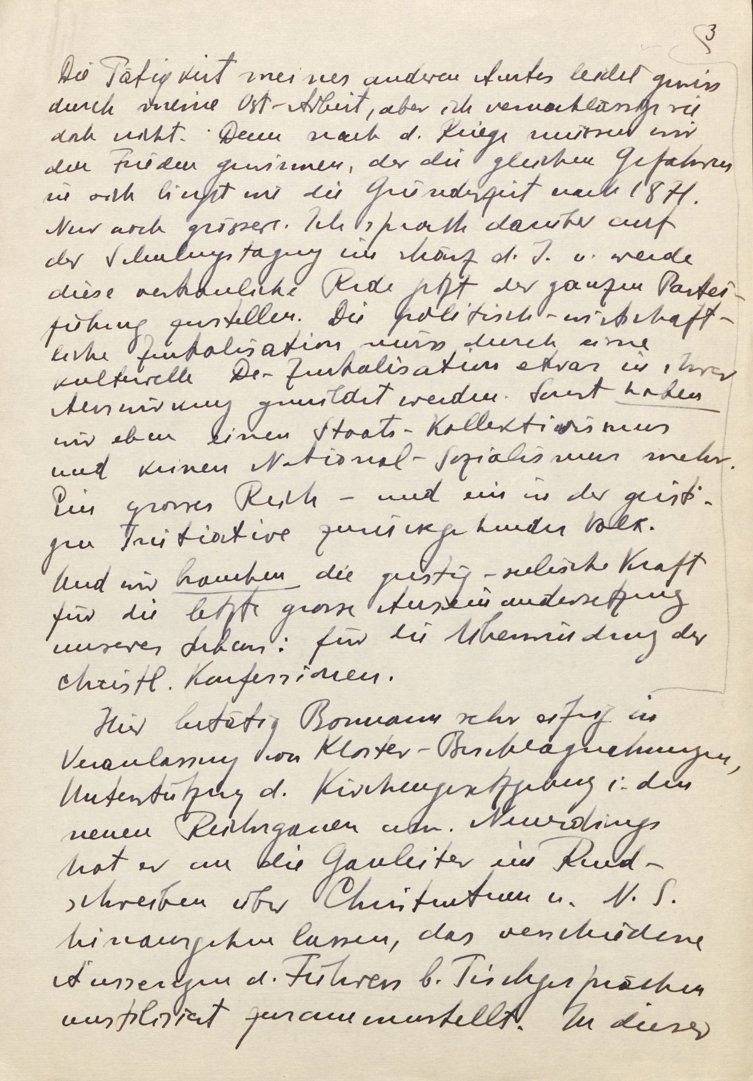 3
Die Tätigkeit meines anderen Amtes leidet gewiss
durch meine Ost-Arbeit, aber ich vernachlässige sie
doch nicht. Denn nach d. Kriege müssen wir
den Frieden gewinnen, der die gleichen Gefahren
in sich birgt wie die Gründerzeit nach 1871.
Nur noch grössere. Ich sprach darüber auf
der Schulungstagung im März d. J. u. werde
diese vertrauliche Rede jetzt der ganzen Partei-
führung zustellen. Die politisch-wirtschaft-
liche Zentralisation muss durch eine
kulturelle De-Zentralisation etwas in ihrer
Auswirkung gemildert werden. Sonst haben
wir eben einen Staats-Kollektivismus
und keinen National-Sozialismus mehr.
Ein grosses Reich – und ein in der geisti-
gen Initiative zurückgehendes Volk.
Und wir brauchen die geistig-seelische Kraft
für die letzte grosse Auseinandersetzung
unseres Lebens: für die Überwindung der
christl. Konfessionen.
Hier betätigt Bormann sehr eifrig in
Veranlassung von Kloster-Beschlagnehmungen,
Unterstützung d. Kirchengesetzgebung i. den
neuen Reichsgauen usw. Neuerdings
hat er an die Gauleiter ein Rund-
schreiben über Christentum u. N. S.
hinausgehen lassen, das verschiedene
Äusserungen d. Führers b. Tischgesprächen
zusammenstellt. In dieser